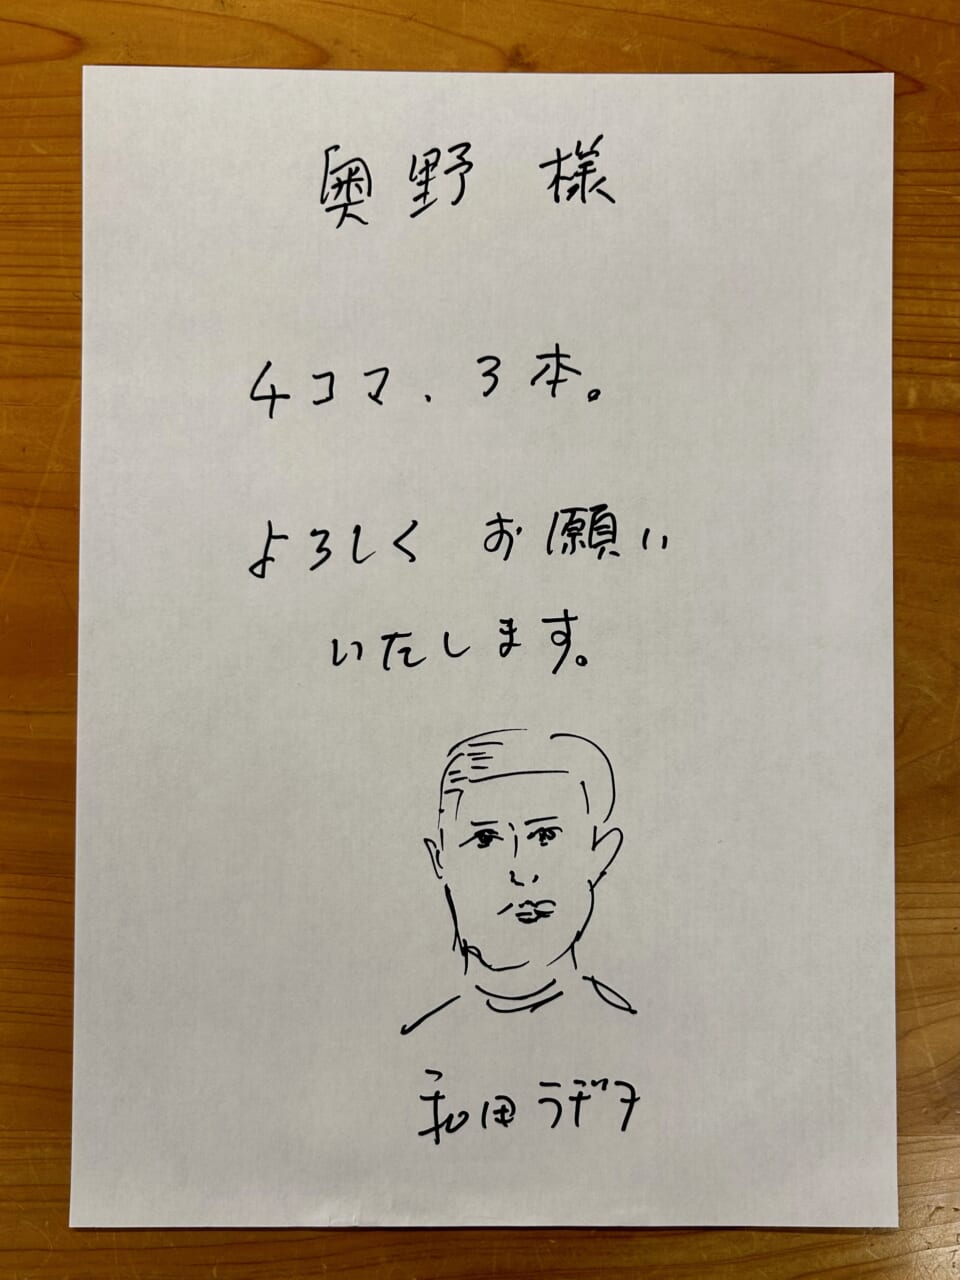 奥野 様
4コマ、3本。
よろしく お願い
いたします。
和田ラヂヲ